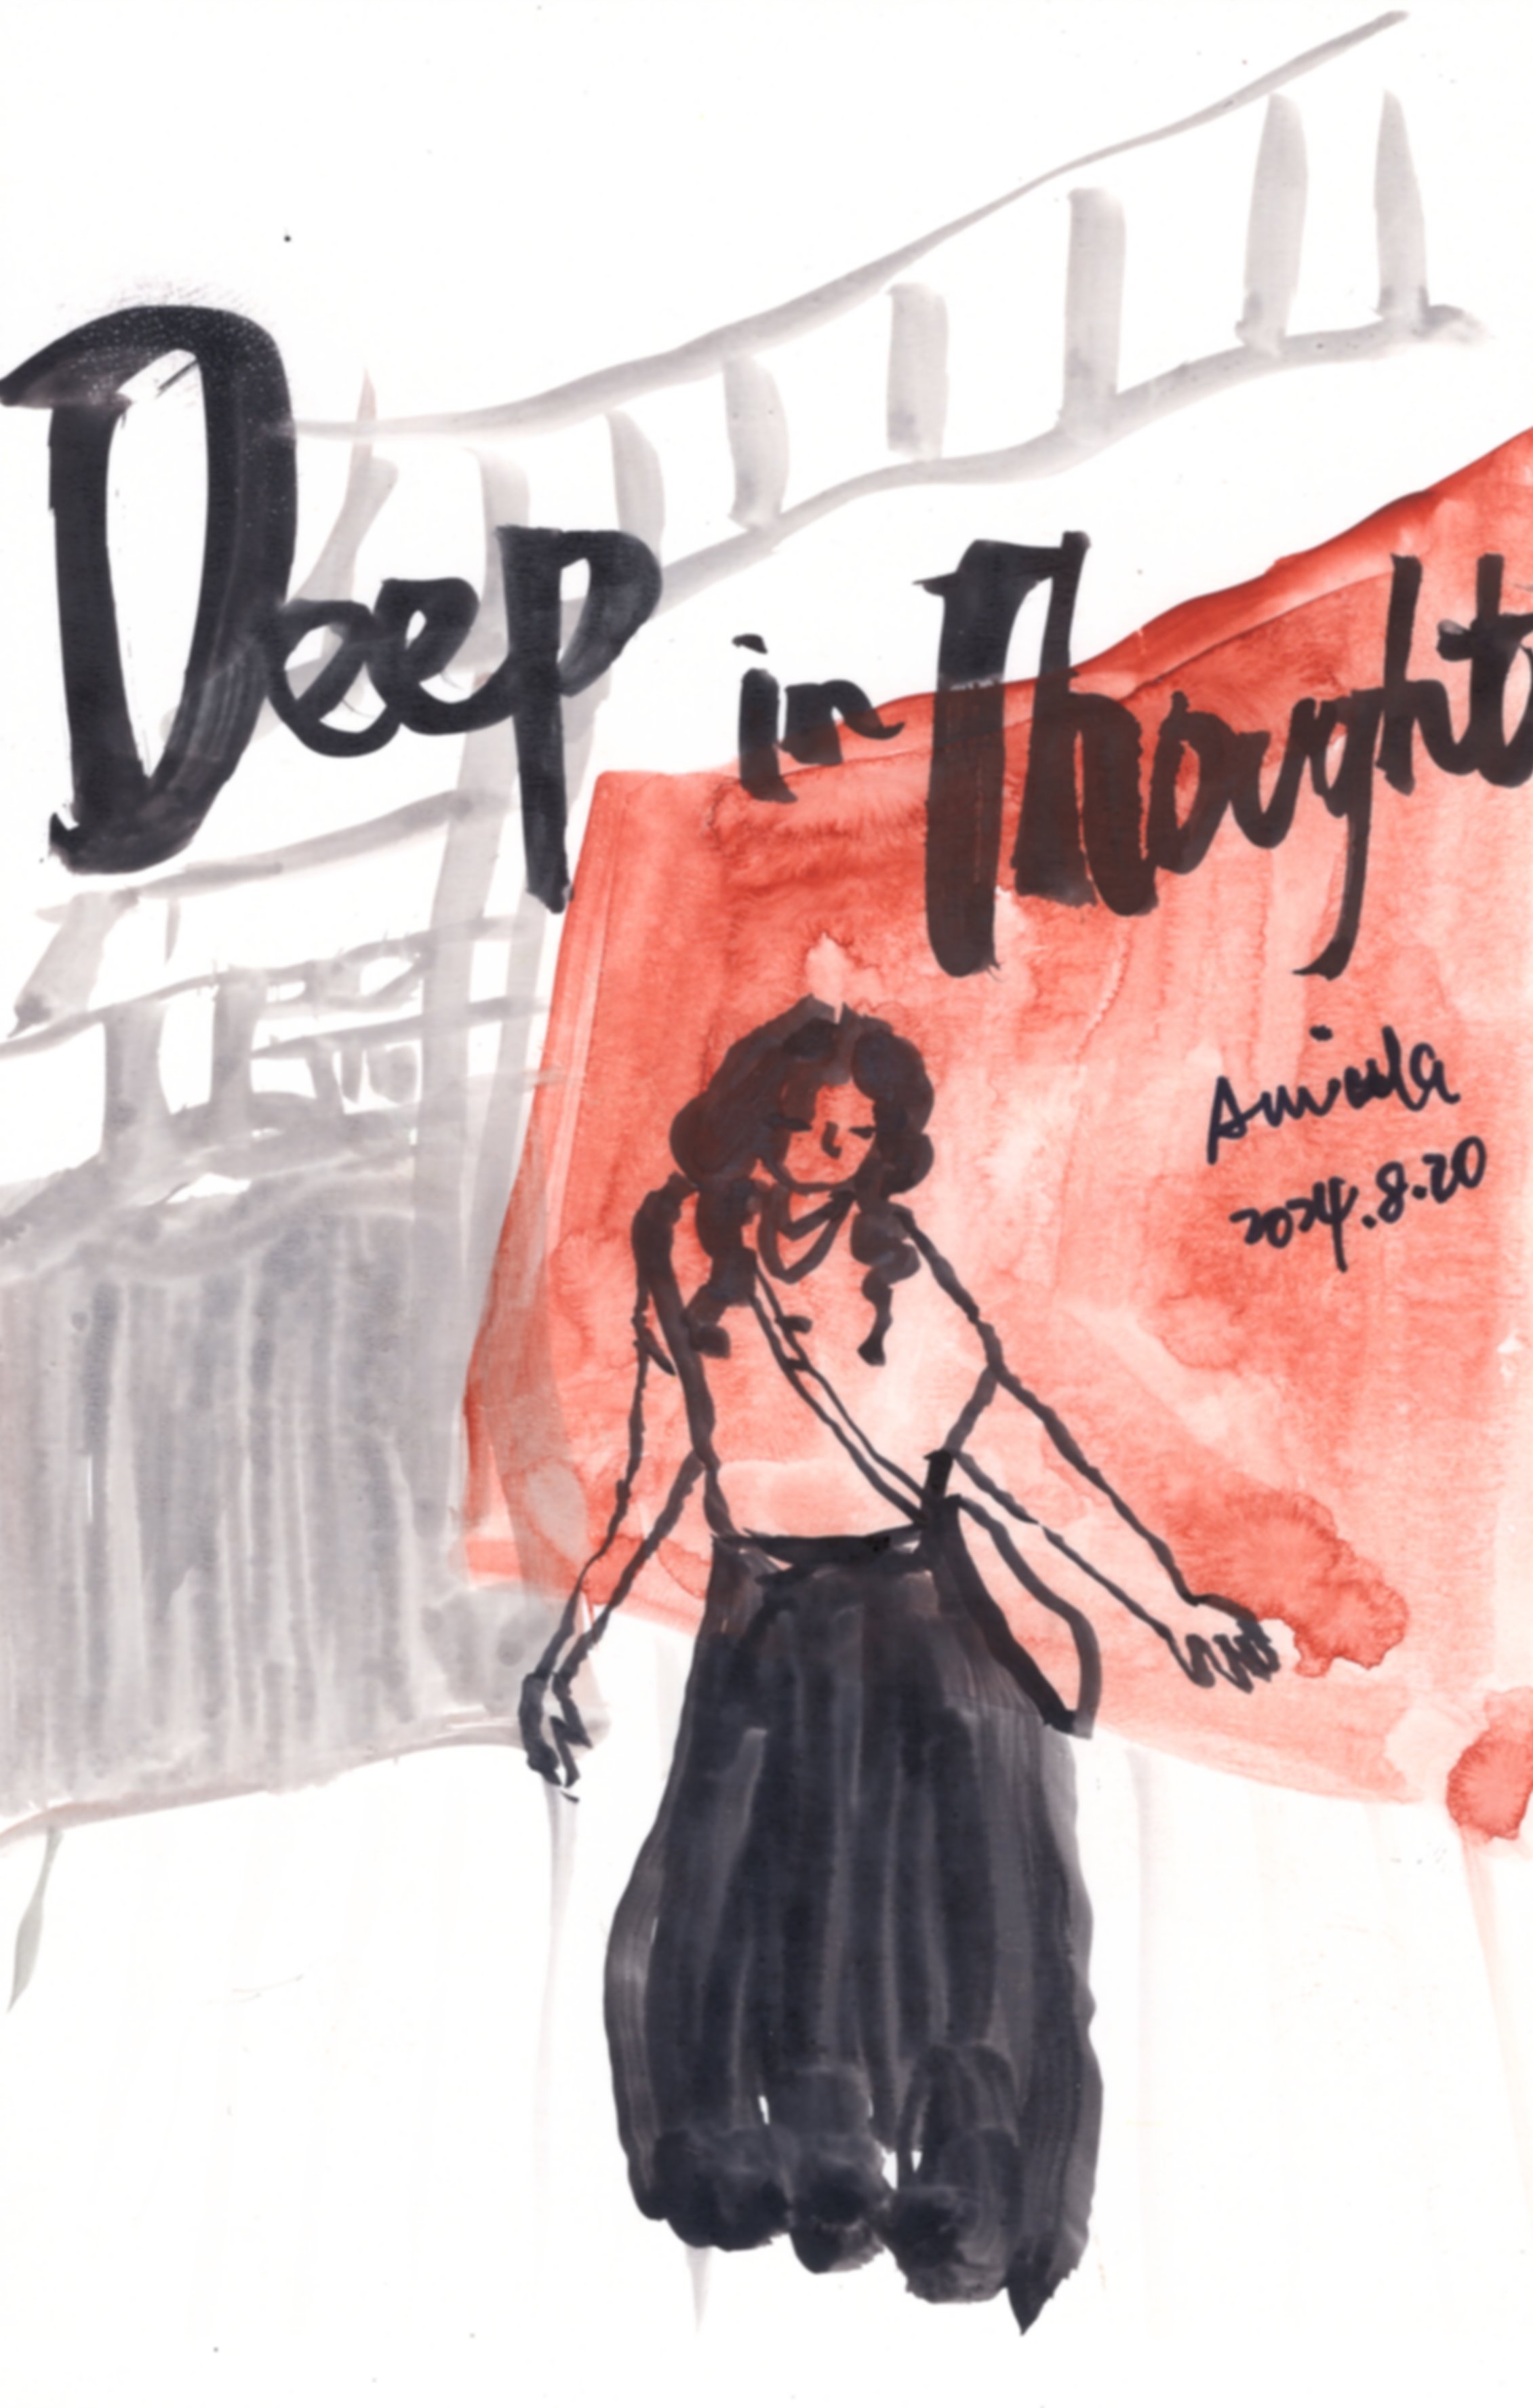 Deep in Thought
2024.8.20